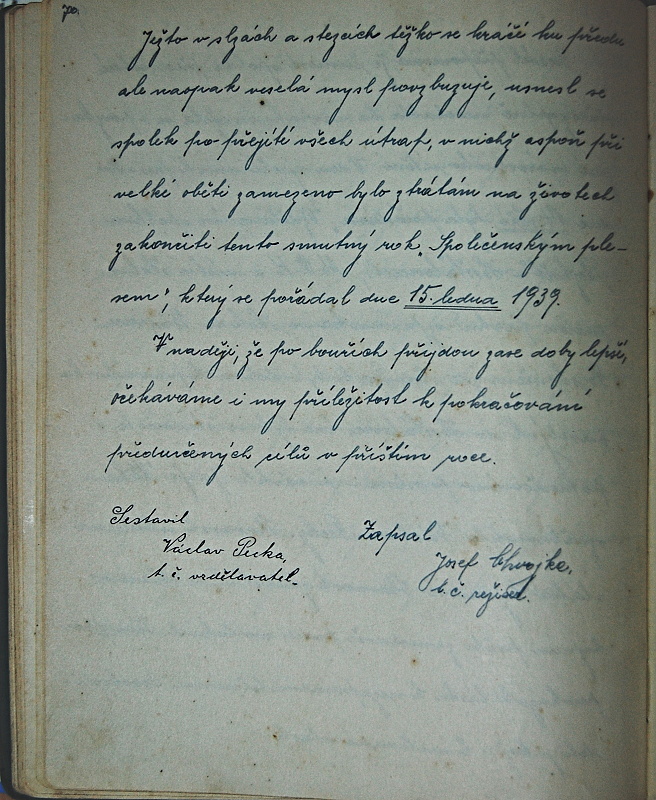 70.
Ježto v slzách a stezcích těžko se kráčí ku předu
ale naopak veselá mysl povzbuzuje, usnesl se
spolek po přejití všech útrap, v nichž aspoň při
velké oběti zamezeno bylo ztrátám na životech
zakončiti tento smutný rok „Společenským ple-
sem“, který se pořádal dne 15. ledna 1939.
V naději, že po bouřích přijdou zase doby lepší,
očekáváme i my příležitost k pokračování
předurčených cílů v příštím roce.
Sestavil
Václav Pecka,
t. č. vzdělavatel.
Zapsal
Josef Chvojka,
t. č. režisér.